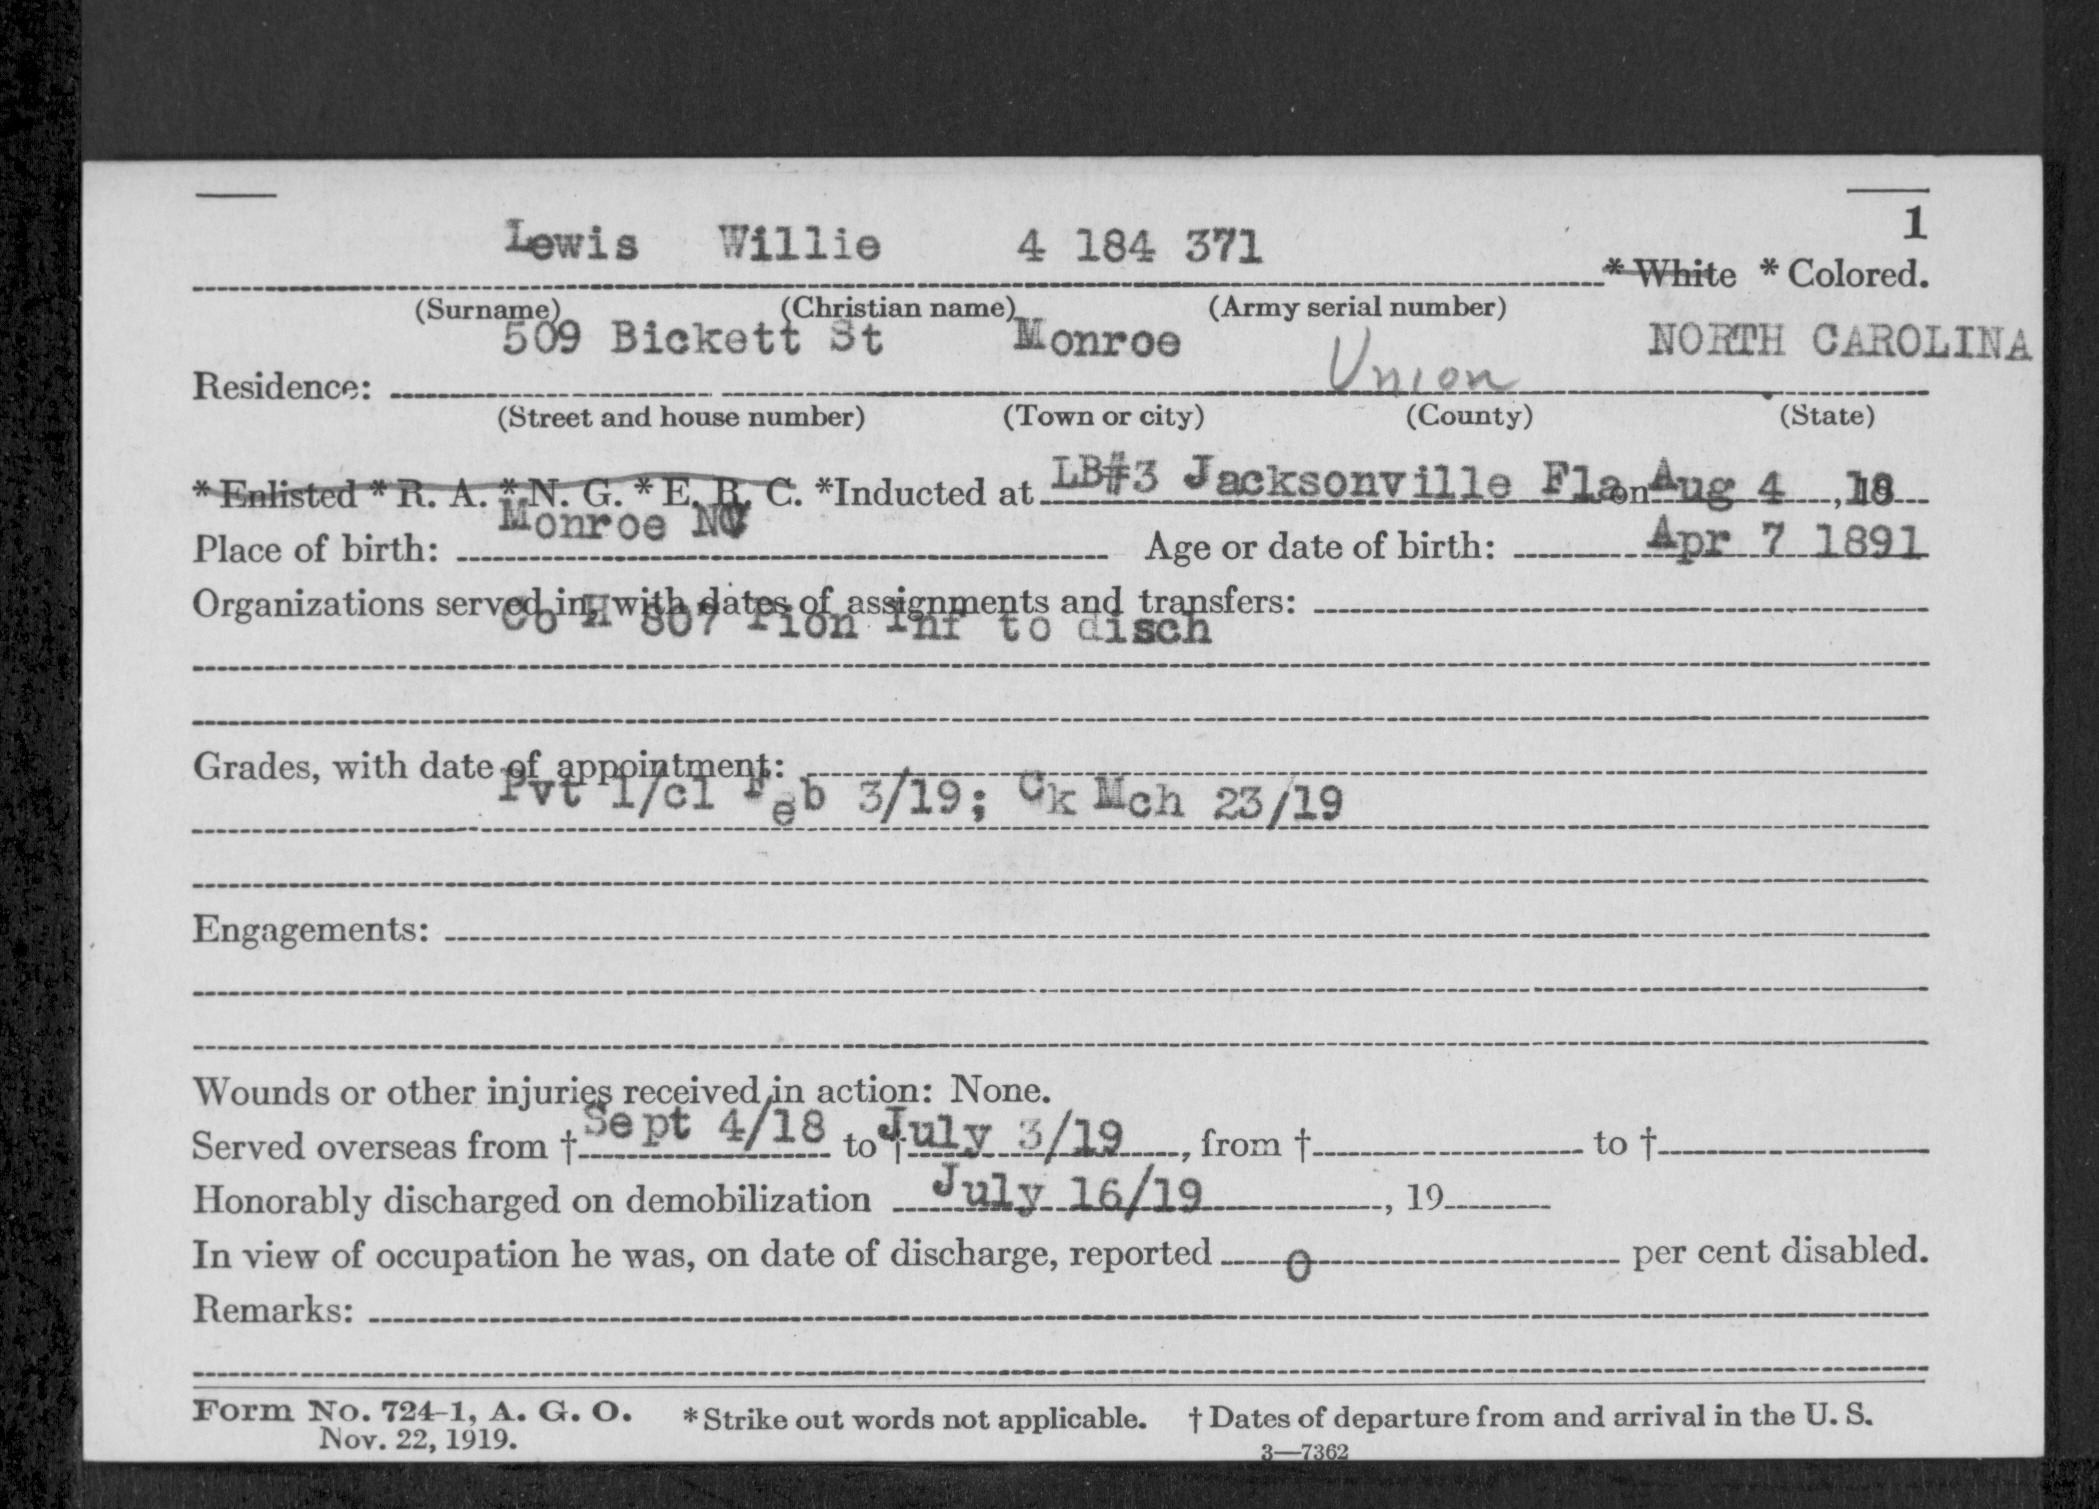 1
Lewis Willie 4 184 371 * White * Colored.
(Surname) (Christian name) (Army serial number)
509 Bickett St Monroe Union NORTH CAROLINA
Residence:
(Street and house number) (Town or city) (County) (State)
* Enlisted * R. A. * N. G. * E. R. C. *Inducted at LB#3 Jacksonville Fla on Aug 4, 18
Place of birth: Monroe NC Age or date of birth: Apr 7 1891
Organizations served in, with dates of assignments and transfers:
Co H 807 Pion Inf to disch
Grades, with date of appointment:
Pvt 1/cl Feb 3/19; Ck Mch 23/19
Engagements:
Wounds or other injuries received in action: None.
Served overseas from † Sept 4/18 to † July 3/19, from † to †
Honorably discharged on demobilization July 16/19, 19
In view of occupation he was, on date of discharge, reported 0 per cent disabled.
Remarks:
Form No. 724-1, A. G. O. * Strike out words not applicable. † Dates of departure from and arrival in the U. S.
Nov. 22, 1919.
3—7362